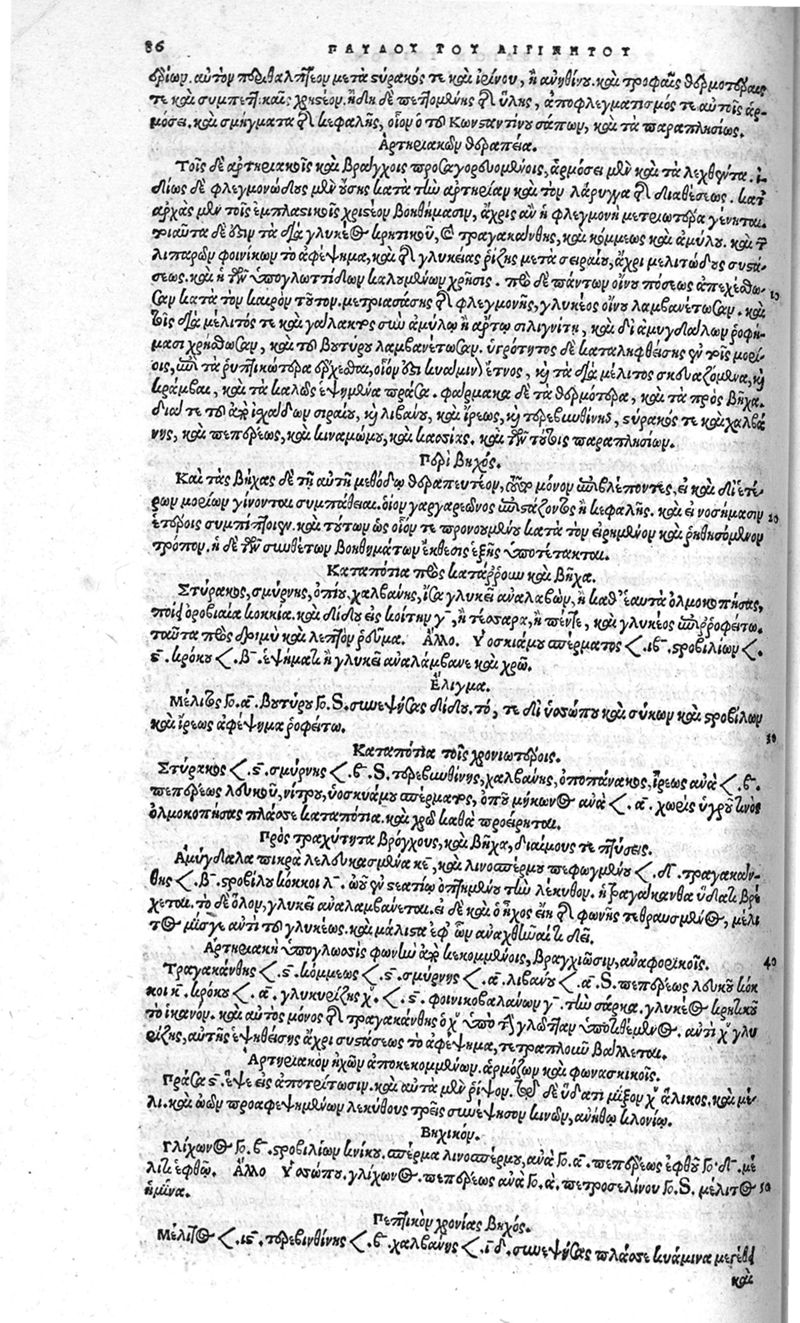 86 ΠΑΥΛΟΥ ΤΟΥ ΑΙΓΙΝΗΤΟΥ
αὐτὸν περιθαλπτέον μετὰ στύρακός τε καὶ ἰρίνου, ἢ ἀνηθίνου. καὶ τροφαῖς θερμοτέραις
τε καὶ συμπεπτικαῖς χρηστέον. ἤδη δὲ πεπτομένης τῆς ὕλης, ἀποφλεγματισμός τε αὐτοῖς ἁρ-
μόσει. καὶ σμήγματα τῆς κεφαλῆς, οἷον ὁ τοῦ Κωνσταντίνου σάπων, καὶ τὰ παραπλησίως.
Ἀρτηριακῶν θεραπεία.
Τοῖς δὲ ἀρτηριακοῖς καὶ βράγχοις προσαγορευομένοις, ἁρμόσει μὲν καὶ τὰ λεχθέντα. ἰ-
δίως δὲ φλεγμονώδους μὲν οὔσης κατὰ τὴν ἀρτηρίαν καὶ τὸν λάρυγγα τῆς διαθέσεως. κατ'
ἀρχὰς μὲν τοῖς ἐμπλαστικοῖς χρηστέον βοηθήμασιν, ἄχρις ἂν ἡ φλεγμονὴ μετριωτέρα γένηται.
τοιαῦτα δέ ἐστιν τὰ διὰ γλυκέος κρητικοῦ, καὶ τραγακάνθης, καὶ κόμμεως καὶ ἀμύλου. καὶ τῶν
λιπαρῶν φοινίκων τὸ ἀφέψημα, καὶ τῆς γλυκείας ῥίζης μετὰ σιραίου, ἄχρι μελιτώδους συστά-
σεως. καὶ ἡ τῶν ὑπογλωττίδων καλουμένων χρῆσις. πρὸ δὲ πάντων οἴνου πόσεως ἀπεχέσθω-
σαν κατὰ τὸν καιρὸν τοῦτον. μετριασάσης τῆς φλεγμονῆς, γλυκέος οἴνου λαμβανέτωσαν. καὶ 10
τοῖς διὰ μέλιτός τε καὶ γάλακτος σὺν ἀμύλῳ ἢ ἄρτῳ σιλιγνίτῃ, καὶ δι' ἀμυγδάλων ῥοφή-
μασι χρήσθωσαν, καὶ τοῦ βουτύρου λαμβανέτωσαν. ὑγρότητος δὲ καταληφθείσης ἐν τοῖς μορί-
οις, ἐπὶ τὰ ῥυπτικώτερα ἔρχεσθαι, οἷόν ἐστι κυάμινον ἔτνος, καὶ τὰ διὰ μέλιτος σκευαζόμενα, καὶ
κράμβαι, καὶ τὰ καλῶς ἑψημένα πράσα. φάρμακα δὲ τὰ θερμότερα, καὶ τὰ πρὸς βῆχα.
διά τε τοῦ ἀπὸ ἰσχάδων σιραίου, καὶ λιβάνου, καὶ ἴρεως, καὶ τερεβινθίνης, στύρακός τε καὶ χαλβά-
νης, καὶ πεπέρεως, καὶ κιναμώμου, καὶ κασίας. καὶ τῶν τούτοις παραπλησίων.
Περὶ βηχός.
Καὶ τὰς βῆχας δὲ τῇ αὐτῇ μεθόδῳ θεραπευτέον, ἐκεῖνο μόνον ἐπιβλέποντες, εἰ καὶ δι' ἑτέ-
ρων μορίων γίνονται συμπάθειαι. οἷον γαργαρεῶνος ἐπιστάζοντος ἢ κεφαλῆς. καὶ εἰ νοσήμασιν 20
ἑτέροις συμπίπτοιεν. καὶ τούτων ὡς οἷόν τε προνοουμένου κατὰ τὸν εἰρημένον καὶ ῥηθησόμενον
τρόπον. ἡ δὲ τῶν συνθέτων βοηθημάτων ἔκθεσις ἑξῆς ὑποτέτακται.
Καταπότια πρὸς κατάρρουν καὶ βῆχα.
Στύρακος, σμύρνης, ὀπίου, χαλβάνης, ἴσα γλυκεῖ ἀναλαβὼν, ἢ καθ' ἑαυτὰ ὁλμοκοπήσας,
ποίει ὀροβιαῖα κοκκία. καὶ δίδου εἰς κοίτην γ', ἢ τέσσαρα, ἢ πέντε, καὶ γλυκέος ἐπιρροφείτω.
ταῦτα πρὸς δριμὺ καὶ λεπτὸν ῥεῦμα. Ἄλλο. Ὑοσκιάμου σπέρματος &lt;. ιβ. στροβιλίων &lt;.
ϛ. κρόκου &lt;. β. ἑψήματι ἢ γλυκεῖ ἀναλάμβανε καὶ χρῶ.
Ἔλιγμα.
Μέλιτος Γο. α. βουτύρου Γο. S. συνεψήσας δίδου. τό, τε δι' ὑσσώπου καὶ σύκων καὶ στροβίλων
καὶ ἴρεως ἀφέψημα ῥοφείτω. 30
Καταπότια τοῖς χρονιωτέροις.
Στύρακος &lt;. ϛ. σμύρνης &lt;. β. S. τερεβινθίνης, χαλβάνης, ὀποπάνακος, ἴρεως ἀνὰ &lt;. β.
πεπέρεως λευκοῦ, νίτρου, ὑοσκυάμου σπέρματος, ὀποῦ μήκωνος ἀνὰ &lt;. α. χωρὶς ὑγροῦ τινος
ὁλμοκοπήσας πλάσσε καταπότια. καὶ χρῶ καθὰ προείρηται.
Πρὸς τραχύτητα βρόγχους, καὶ βῆχα, διαίμους τε πτύσεις.
Ἀμύγδαλα πικρὰ λελευκασμένα κε, καὶ λινοσπέρμου πεφωγμένου &lt;. δ. τραγακάν-
θης &lt;. β. στροβίλου κόκκοι λ. ὠοῦ ἐν στέατίῳ ὀπτημένου τὴν λέκυθον. ἡ τραγάκανθα ὕδατι βρέ-
χεται. τὸ δὲ ὅλον, γλυκεῖ ἀναλαμβάνεται. εἰ δὲ καὶ ὁ ἦχος εἴη τῆς φωνῆς τεθραυσμένος, μέλι-
τος μίσγε ἀντὶ τοῦ γλυκέως. καὶ μάλιστα ἐφ' ὧν ἀναχθῆναί τι δεῖ.
Ἀρτηριακὴ ὑπογλωσσὶς φωνὴν ἀποκεκομμένοις, βραγχιῶσιν, ἀναφορικοῖς. 40
Τραγακάνθης &lt;. ϛ. κόμμεως &lt;. ϛ. σμύρνης &lt;. α. λιβάνου &lt;. α. S. πεπέρεως λευκοῦ κόκ-
κοι κ. κρόκου &lt;. α. γλυκυρίζης χυ. &lt;. ϛ. φοινικοβαλάνων γ. τὴν σάρκα. γλυκέος κρητικοῦ
τὸ ἱκανόν. καὶ αὐτὸς μόνος τῆς τραγακάνθης ὁ χυ ὑπὸ τὴν γλῶτταν ὑποτιθέμενος. ἀντὶ χυ γλυ
ρίζης, αὐτῆς ἑψηθείσης ἄχρι συστάσεως τὸ ἀφέψημα, τετραπλοῦν βάλλεται.
Ἀρτηριακὸν ἤχων ἀποκεκομμένων. ἁρμόζων καὶ φωνασκικοῖς.
Πράσα ϛ. ἕψε εἰς ἀποτρίτωσιν. καὶ αὐτὰ μὲν ῥίψον. τῷ δὲ ὕδατι μῖξον χυ ἅλικος. καὶ μέ-
λι. καὶ ὠῶν προαφεψημένων λεκύθους τρεῖς συνέψησον κινῶν, ἀνήθῳ κλονίῳ.
Βηχικόν.
Γλίχωνος Γο. β. στροβιλίων κνίκου. σπέρμα λινοσπέρμου, ἀνὰ Γο. α. πεπέρεως ἑφθοῦ Γο. δ. μέ
λιτι ἑφθῷ. Ἄλλο Ὑσσώπου. γλίχωνος. πεπέρεως ἀνὰ Γο. α. πετροσελίνου Γο. S. μέλιτος 50
ἡμίνα.
Πεπτικὸν χρονίας βηχός.
Μέλιτος &lt;. ιϛ. τερεβινθίνης &lt;. β. χαλβάνης &lt;. ιδ. συνεψήσας πλάσσε κυάμινα μεγέθη
καὶ